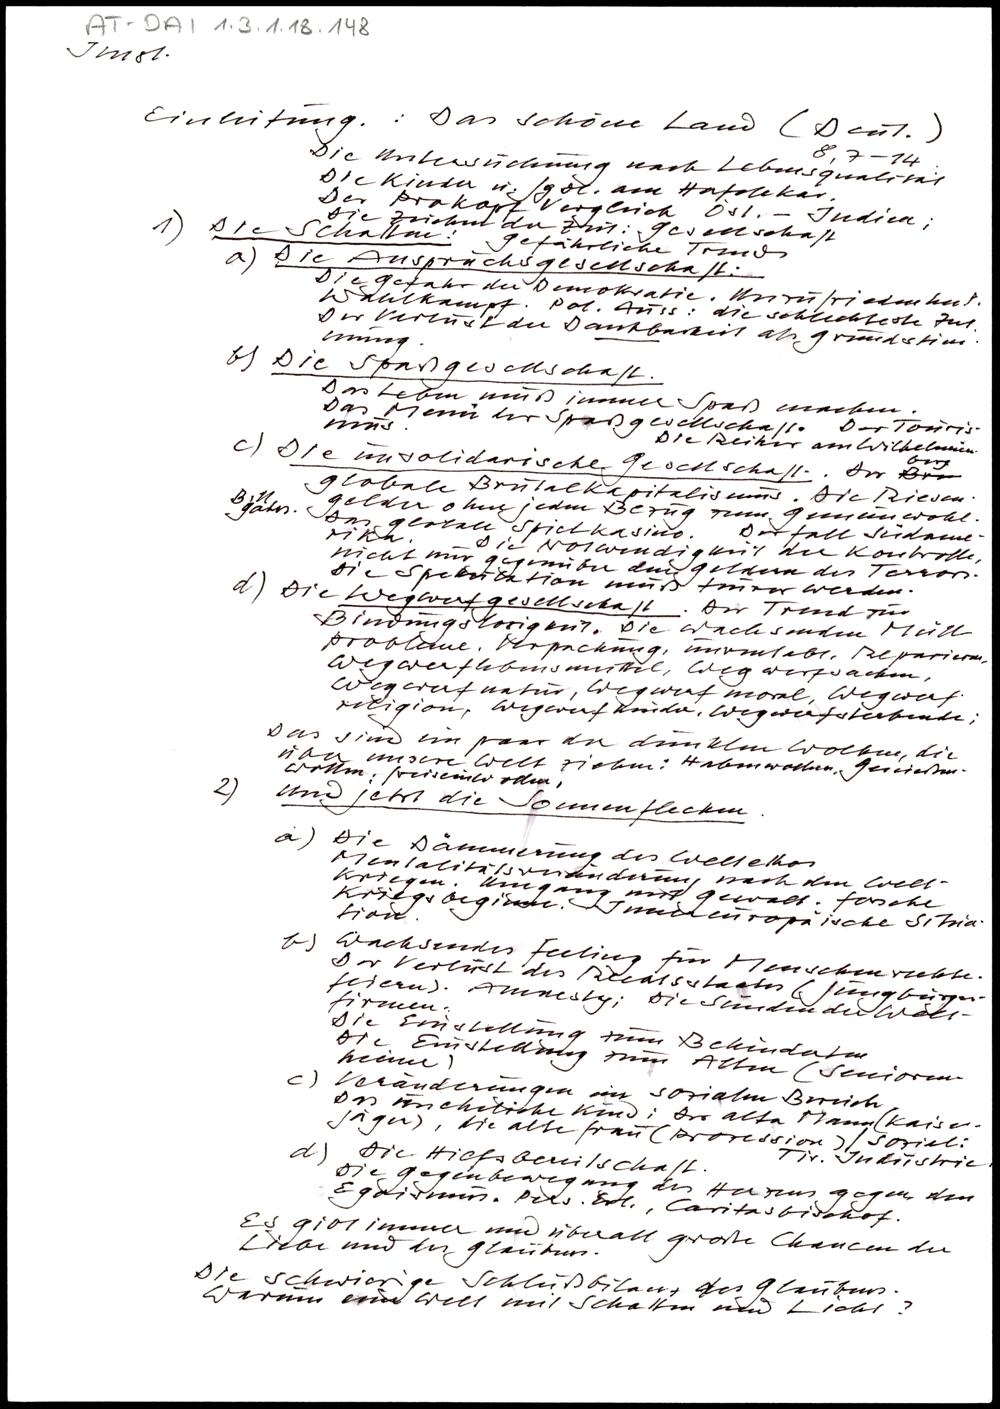 AT-DAI 1.3.1.18.148
Einleitung. : Das schöne Land (Deut.)
8,7-14
Die Untersuchung nach Lebensqualität
Die Kinder u. am Hafelekar.
Der Prokopf Vergleich Öst. - Indien;
Die Zeichen der Zeit: Gesellschaft
1) Die Schatten: gefährliche Trends
a) Die Anspruchsgesellschaft:
Die Gefahr der Demokratie. Unzufriedenheit.
Wahlkampf. Pol. Auss: die schlechteste Zeit.
Der Verlust der Dankbarkeit als Grundstim-
mung.
b) Die Spaßgesellschaft.
Das Leben muß immer Spaß machen.
Das Menü der Spaßgesellschaft. Der Touris-
mus. Die am Wilhelminen-
berg
c) Die unsolidarische Gesellschaft. Der
globale Brutalkapitalismus. Die Riesen-
Bill
Gates.
gelder ohne jeden Bezug zum Gemeinwohl.
Das globale Spielkasino. Der Fall Südame-
rika. Die Notwendigkeit der Kontrolle,
nicht nur gegenüber den Geldern des Terrors.
Die Spekulation muß teurer werden.
d) Die Wegwerfgesellschaft. Der Trend zur
Bindungslosigkeit. Die wachsenden Müll
probleme. Verpackung, Reparieren,
Wegwerflebensmittel, Wegwerfsachen,
Wegwerfnatur, Wegwerfmoral, Wegwerf-
religion, Wegwerfkinder, Wegwerfsterbende;
Das sind ein paar der dunklen Wolken, die
über unsere Welt ziehen: Habenwollen, Genießen-
wollen, freiseinwollen,
2) Und jetzt die Sonnenflecken.
a) Die Dämmerung des Weltethos
Mentalitätsveränderung nach den Welt-
kriegen. Umgang mit Gewalt. Forsche
Kriegsbeginne. Innereuropäische Situa-
tion.
b) Wachsendes Feeling für Menschenrechte.
Der Verlust des Rechtsstaates (Jungbürger-
feiern). Amnesty; Die Sünden der Welt-
firmen.
Die Einstellung zum Behinderten
Die Einstellung zum Alten (Senioren-
heime)
c) Veränderungen im sozialen Bereich
Das uneheliche Kind; Der alte Mann (Kaiser-
jäger), die alte Frau (Prozession)/ Sozial:
Tir. Industrie
d) Die Hilfsbereitschaft.
Die Gegenbewegung des Herzens gegen den
Egoismus. , Caritasbischof.
Es gibt immer und überall große Chancen der
Liebe und des Glaubens.
Die schwierige Schlußbilanz des Glaubens.
Warum eine Welt mit Schatten und Licht?